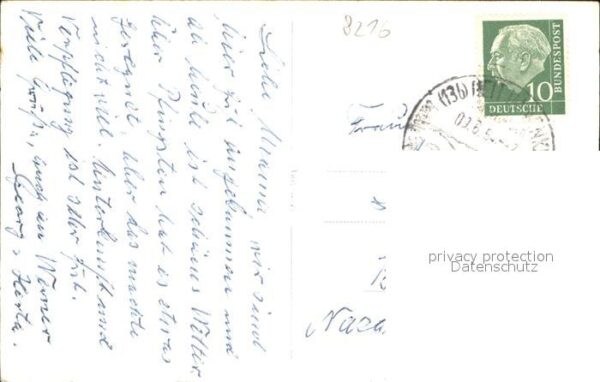 Liebe Mamma wir sind
hier gut angekommen und
ab heute ist schönes Wetter.
Über Pfingsten hat es etwas
geregnet, aber das machte
nicht viel. Unterkunft und
Verpflegung ist sehr gut.
Viele Grüße, auch an Werner
Georg + Herta.
8216
10
DEUTSCHE
BUNDESPOST
(13b)
Frau
privacy protection
Datenschutz